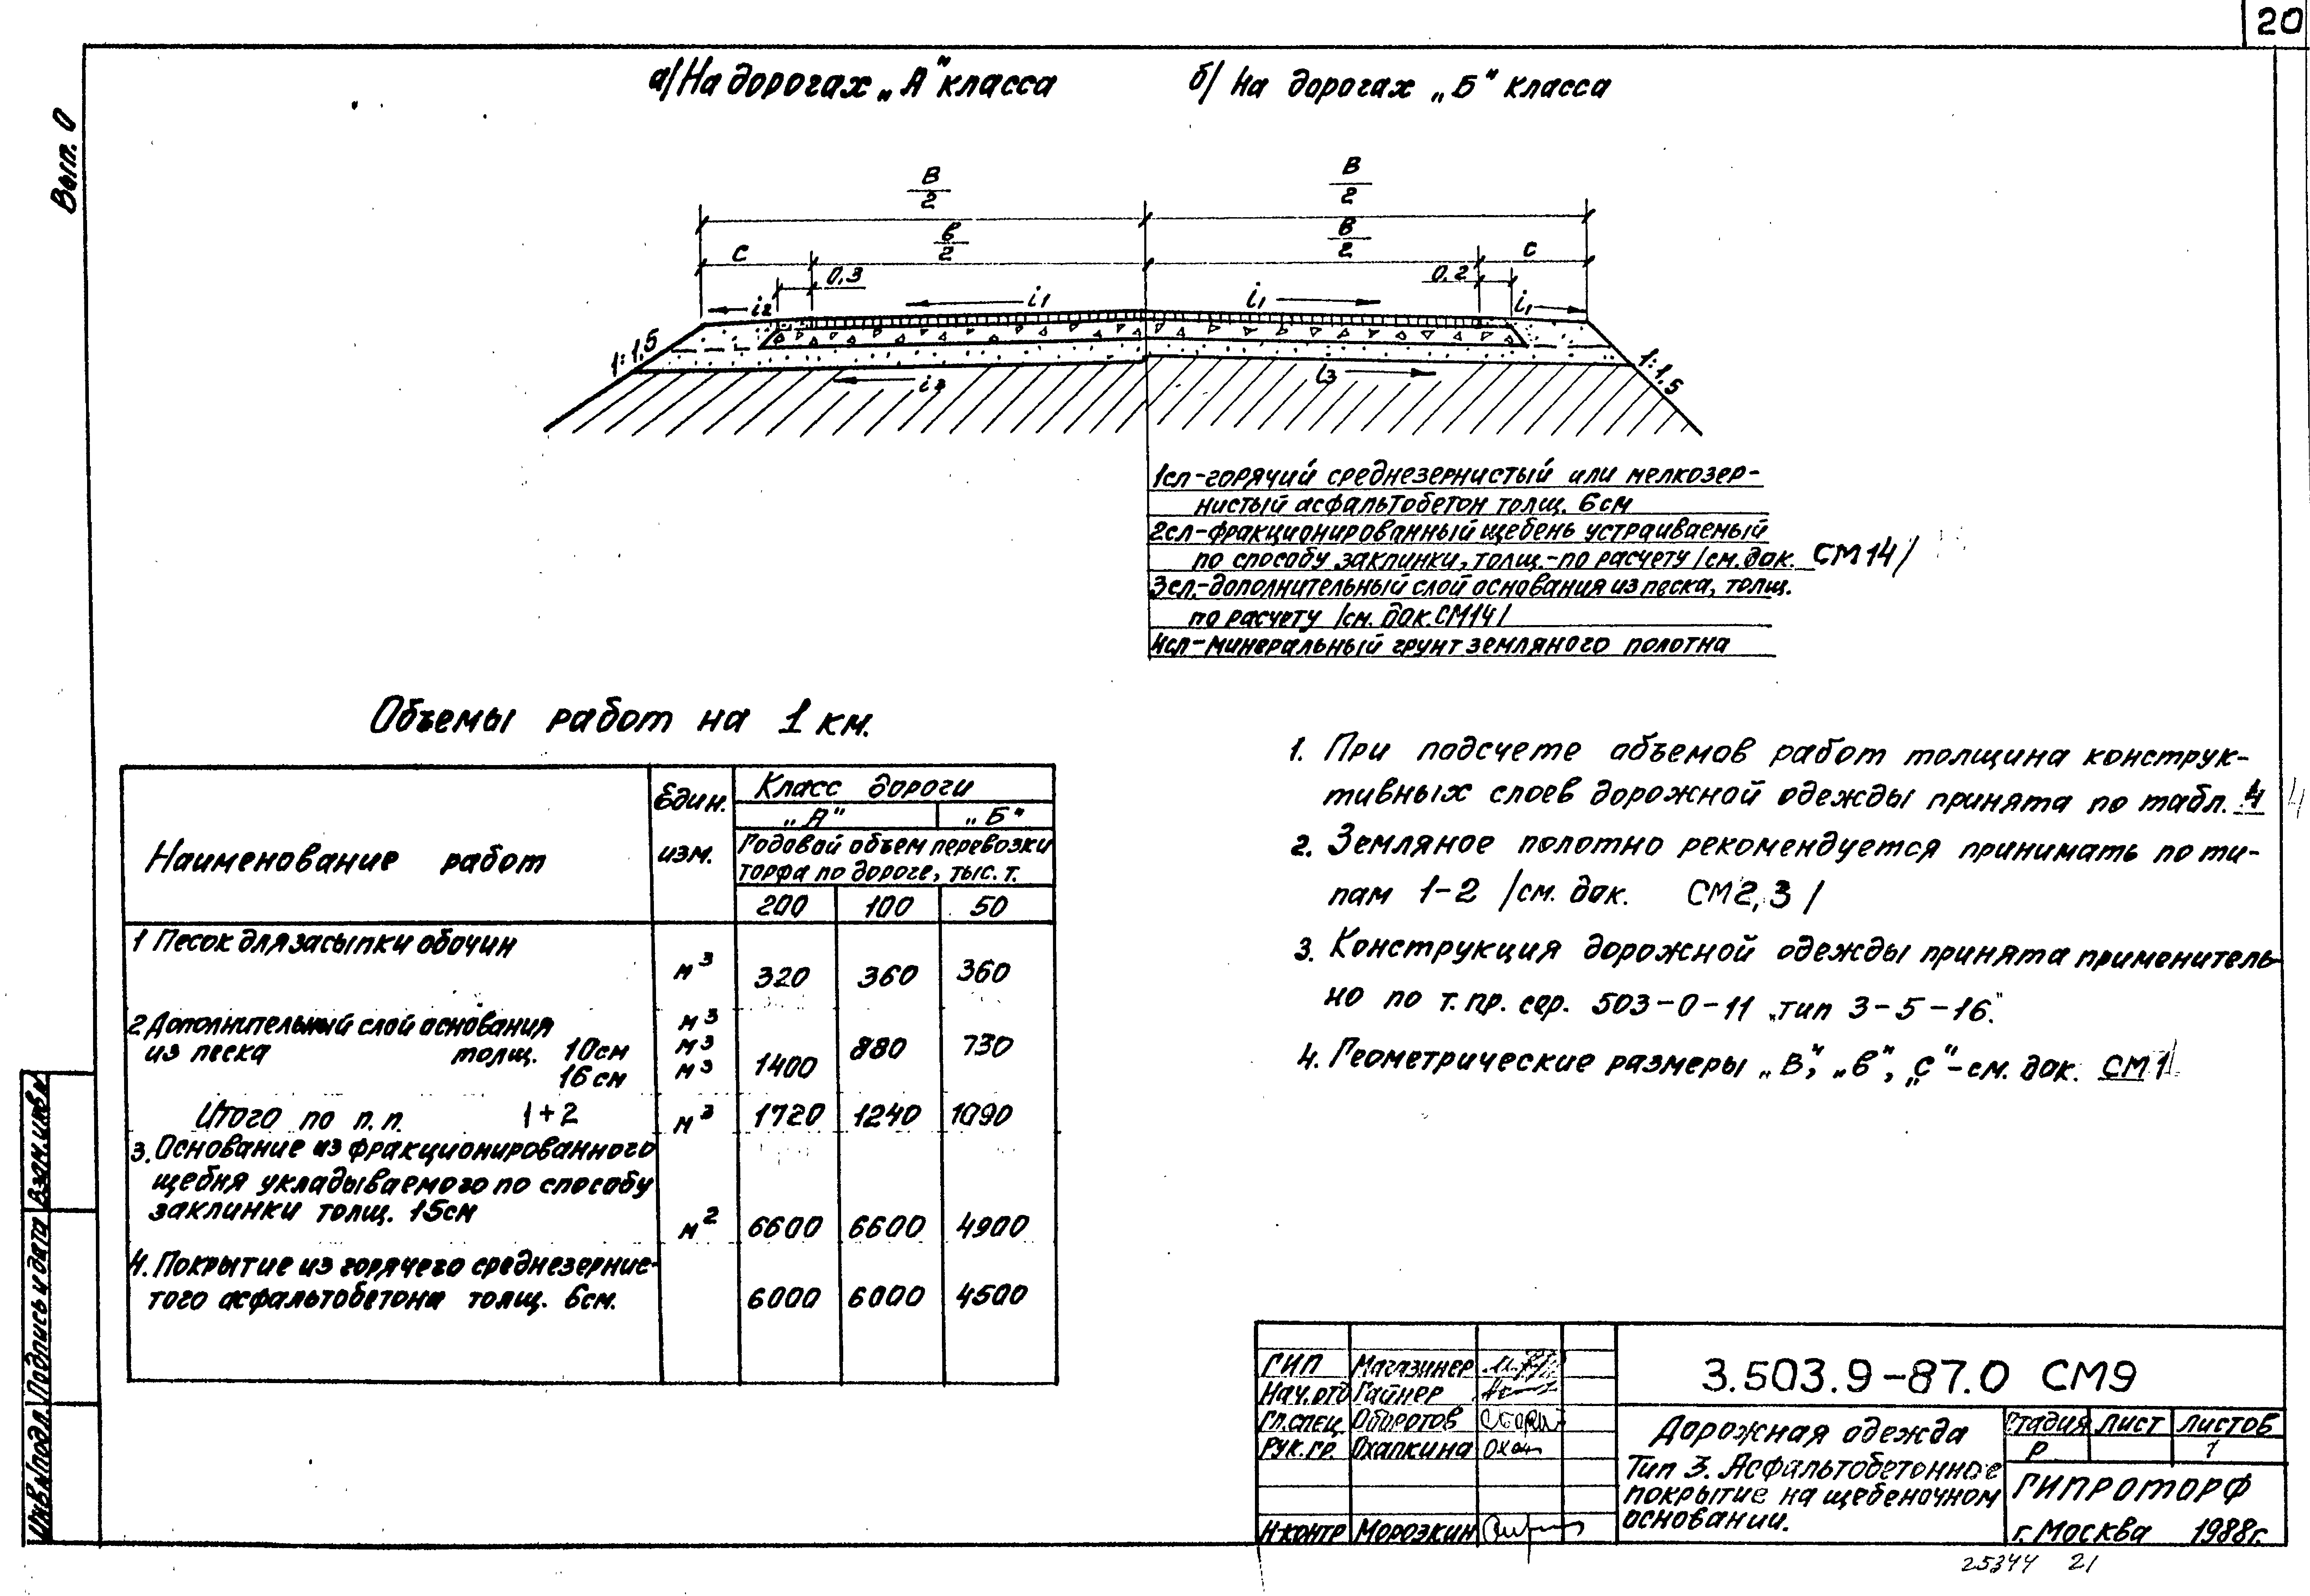 20
Вып. 0
а/ На дорогах „А" класса
б/ На дорогах „Б" класса
В
2
В
2
С
в
2
В
2
С
0,3
0,2
i2
i1
i1
i1
1:1,5
i3
i3
1:1,5
1сл-горячий среднезернистый или мелкозер-
нистый асфальтобетон толщ. 6см
2сл-фракционированный щебень устраиваемый
по способу заклинки, толщ.-по расчету /см. док. СМ14/
3сл.-дополнительный слой основания из песка, толщ.
по расчету /см. док. СМ14/
4сл-минеральный грунт земляного полотна
Объемы работ на 1 км.
Наименование работ
Един.
изм.
Класс дороги
„А" „Б"
Годовой объем перевозки
торфа по дороге, тыс. т.
200 100 50
1 Песок для засыпки обочин
м³ 320 360 360
2 Дополнительный слой основания м³
из песка толщ. 10см м³ 880 730
16см м³ 1400
Итого по п.п. 1+2 м³ 1720 1240 1090
3. Основание из фракционированного
щебня укладываемого по способу
заклинки толщ. 15см м² 6600 6600 4900
4. Покрытие из горячего среднезернис-
того асфальтобетона толщ. 6см. 6000 6000 4500
1. При подсчете объемов работ толщина конструк-
тивных слоев дорожной одежды принята по табл. 4 4
2. Земляное полотно рекомендуется принимать по ти-
пам 1-2 /см. док. СМ2,3/
3. Конструкция дорожной одежды принята применитель-
но по т.пр. сер. 503-0-11 „тип 3-5-16".
4. Геометрические размеры „В", „в", „С" - см. док. СМ1
Инв.№подл. Подпись и дата Взам.инв.№
ГИП Магазинер
Нач.отд Гайнер
Гл.спец Обиротов
Рук.гр. Охапкина
Н-контр Морозкин
3.503.9-87.0 СМ9
Дорожная одежда
Тип 3. Асфальтобетонное
покрытие на щебеночном
основании.
Стадия Лист Листов
Р 1
ГИПРОТОРФ
г. Москва 1988г.
25344 21